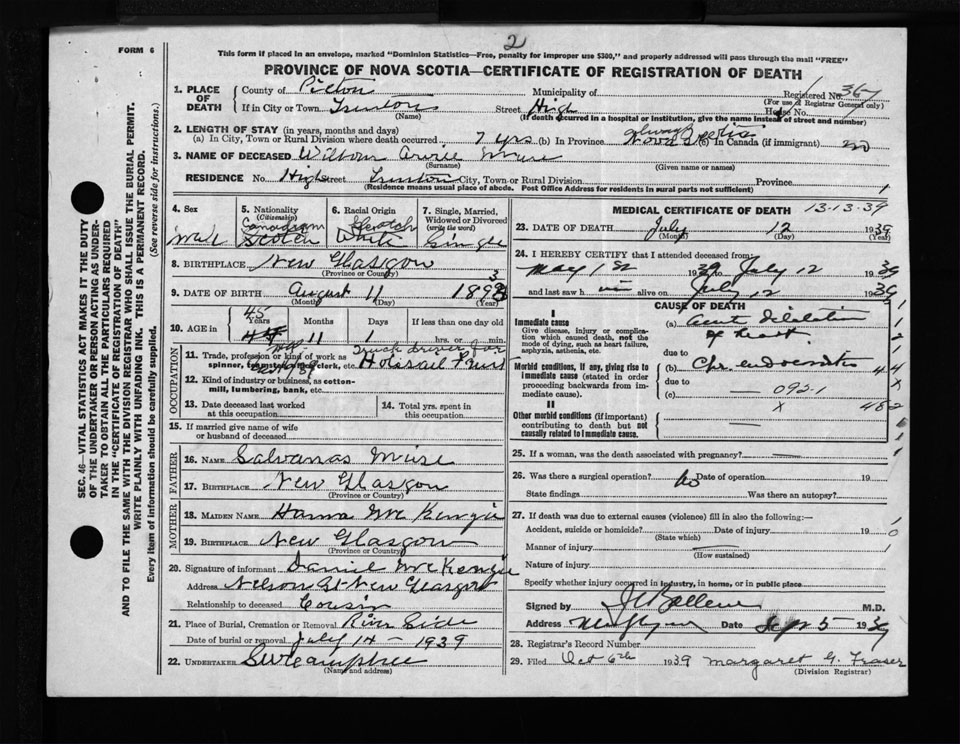 2
FORM 6
This form if placed in an envelope, marked "Dominion Statistics—Free, penalty for improper use $300," and properly addressed will pass through the mail "FREE"
PROVINCE OF NOVA SCOTIA—CERTIFICATE OF REGISTRATION OF DEATH
1. PLACE OF DEATH
County of Pictou Municipality of Registered No. 367
(For use of Registrar General only)
If in City or Town Trenton Street High House No.
(Name) (If death occurred in a hospital or institution, give the name instead of street and number)
2. LENGTH OF STAY (in years, months and days)
(a) In City, Town or Rural Division where death occurred 7 yrs (b) In Province always Nova Scotia (c) In Canada (if immigrant) no
3. NAME OF DECEASED Muise
(Surname) (Given name or names)
RESIDENCE No. High Street Trenton City, Town or Rural Division Province
(Residence means usual place of abode. Post Office Address for residents in rural parts not sufficient)
4. Sex Male
5. Nationality (Citizenship) Canadian Scotch
6. Racial Origin Scotch White
7. Single, Married, Widowed or Divorced (write the word) Single
8. BIRTHPLACE New Glasgow
(Province or County)
9. DATE OF BIRTH August 11 1893
(Month) (Day) (Year)
10. AGE in 45 Years 11 Months 1 Days If less than one day old hrs. or min.
OCCUPATION
11. Trade, profession or kind of work as spinner, teamster, office clerk, etc. Truck driver for
12. Kind of industry or business, as cotton-mill, lumbering, bank, etc.
13. Date deceased last worked at this occupation
14. Total yrs. spent in this occupation
15. If married give name of wife or husband of deceased
FATHER
16. NAME Salvanas Muise
17. BIRTHPLACE New Glasgow
(Province or Country)
MOTHER
18. MAIDEN NAME Hanna McKenzie
19. BIRTHPLACE New Glasgow
(Province or Country)
20. Signature of informant Daniel McKenzie
Address Nelson St New Glasgow
Relationship to deceased Cousin
21. Place of Burial, Cremation or Removal River Side
Date of burial or removal July 14 - 1939
22. UNDERTAKER
(Name and address)
MEDICAL CERTIFICATE OF DEATH 13-13-39
23. DATE OF DEATH July 12 1939
(Month) (Day) (Year)
24. I HEREBY CERTIFY that I attended deceased from
May 1st 1939 to July 12 1939
and last saw h im alive on July 12 1939
CAUSE OF DEATH
I
Immediate cause
Give disease, injury or complication which caused death, not the mode of dying, such as heart failure, asphyxia, asthenia, etc.
(a) Acute Dilatation
of heart
due to
Morbid conditions, if any, giving rise to immediate cause (stated in order proceeding backwards from immediate cause)
(b) Chr. endocarditis
due to
(c) 092-1
II
Other morbid conditions (if important) contributing to death but not causally related to immediate cause.
25. If a woman, was the death associated with pregnancy?
26. Was there a surgical operation? no Date of operation 19
State findings Was there an autopsy?
27. If death was due to external causes (violence) fill in also the following:—
Accident, suicide or homicide? Date of injury 19
(State which)
Manner of injury
(How sustained)
Nature of injury
Specify whether injury occurred in industry, in home, or in public place
Signed by M.D.
Address New Glasgow Date Sept 5 1939
28. Registrar's Record Number
29. Filed Oct 6th 1939 Margaret G. Fraser
(Division Registrar)
SEC. 46—VITAL STATISTICS ACT MAKES IT THE DUTY
OF THE UNDERTAKER OR PERSON ACTING AS UNDER-
TAKER TO OBTAIN ALL THE PARTICULARS REQUIRED
IN THE "CERTIFICATE OF REGISTRATION OF DEATH"
AND TO FILE THE SAME WITH THE DIVISION REGISTRAR WHO SHALL ISSUE THE BURIAL PERMIT.
WRITE PLAINLY WITH UNFADING INK. THIS IS A PERMANENT RECORD.
Every item of information should be carefully supplied. (See reverse side for instructions.)